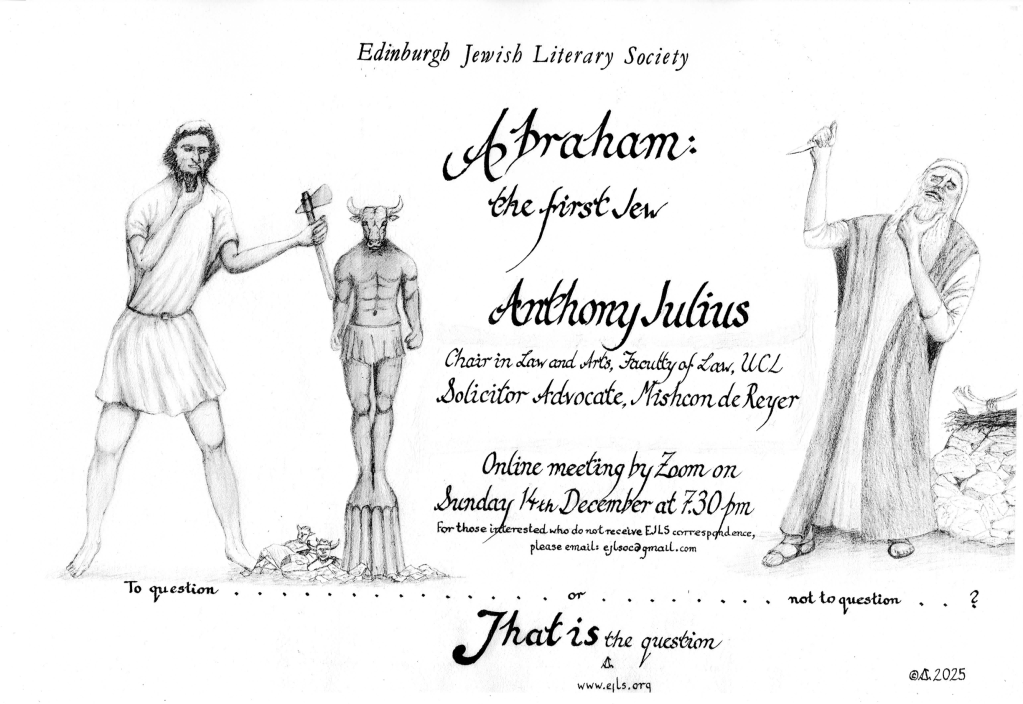 Edinburgh Jewish Literary Society
Abraham:
the first Jew
Anthony Julius
Chair in Law and Arts, Faculty of Law, UCL
Solicitor Advocate, Mishcon de Reyer
Online meeting by Zoom on
Sunday 14th December at 7.30 pm
For those interested who do not receive EJLS correspondence,
please email: ejlsoc@gmail.com
To question . . . . . . . . . . . . . . . or . . . . . . . . not to question . . ?
That is the question
www.ejls.org
2025